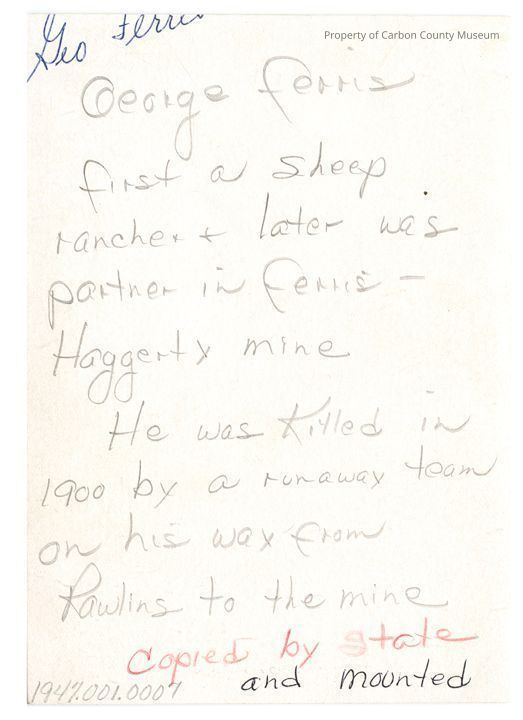 Property of Carbon County Museum
Geo Ferris
George Ferris
first a sheep
rancher + later was
partner in Ferris -
Haggerty mine
He was killed in
1900 by a runaway team
on his way from
Rawlins to the mine
Copied by state
and mounted
1947.001.0007